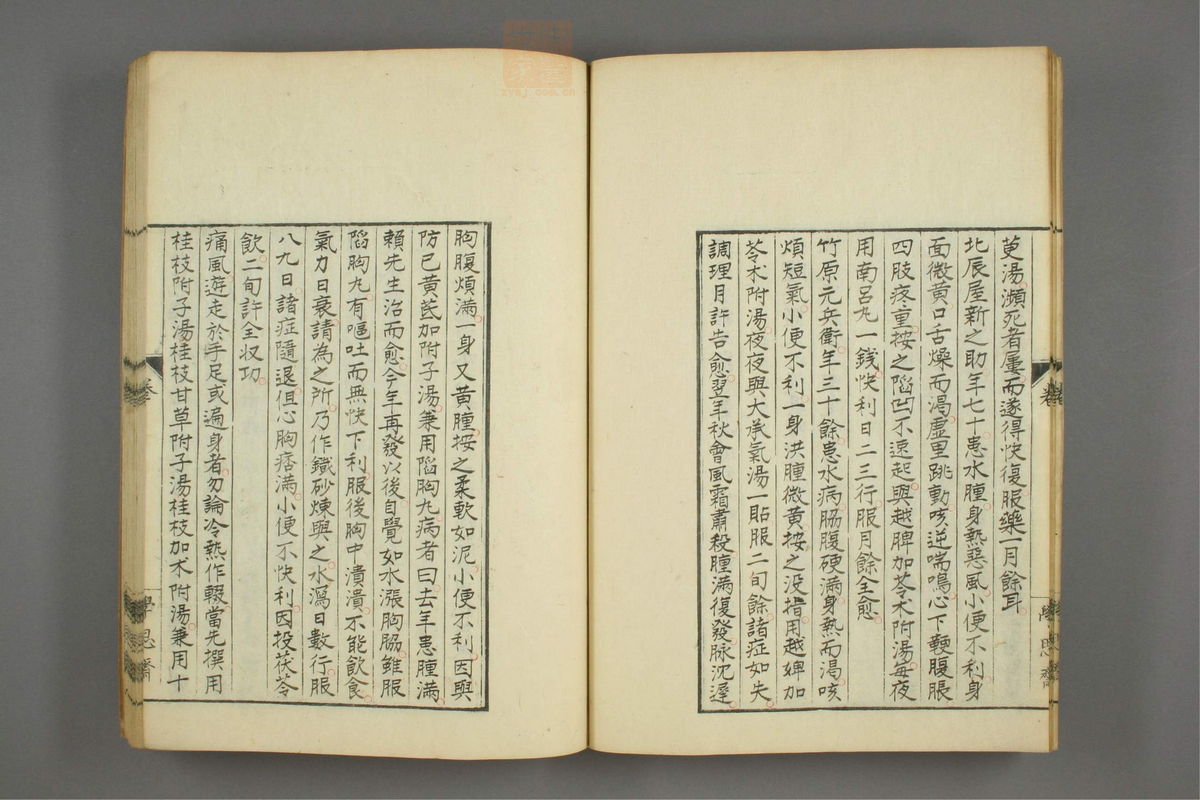 萸湯瀕死者屢而遂得快復服藥一月餘耳
北辰屋新之助年七十患水腫身熱惡風小便不利身
面微黄口舌燥而渴虚里跳動咳逆喘鳴心下鞕腹脹
四肢疼重按之陷凹不速起與越脾加苓朮附湯每夜
用南呂丸一錢快利日二三行服月餘全愈
竹原元兵衛年三十餘患水病脇腹硬滿身熱而渴咳
煩短氣小便不利一身洪腫微黄按之没指用越婢加
苓朮附湯夜夜與大承氣湯一貼服二旬餘諸症如失
調理月許告愈翌年秋會風霜肅殺腫滿復發脉沈遲
胸腹煩滿一身又黄腫按之柔軟如泥小便不利因與
防已黄芪加附子湯兼用陷胸丸病者曰去年患腫滿
賴先生治而愈今年再發以後自覺如水漲胸脇雖服
陷胸丸有嘔吐而無快下利服後胸中潰潰不能飲食
氣力日衰請為之所乃作鐵砂煉與之水瀉日數行服
八九日諸症隨退但心胸痞滿小便不快利因投茯苓
飲二旬許全収功
痛風遊走於手足或遍身者勿論冷熱作輟當先撰用
桂枝附子湯桂枝甘草附子湯桂枝加朮附湯兼用十
卷
學思齋
zysj.com.cn